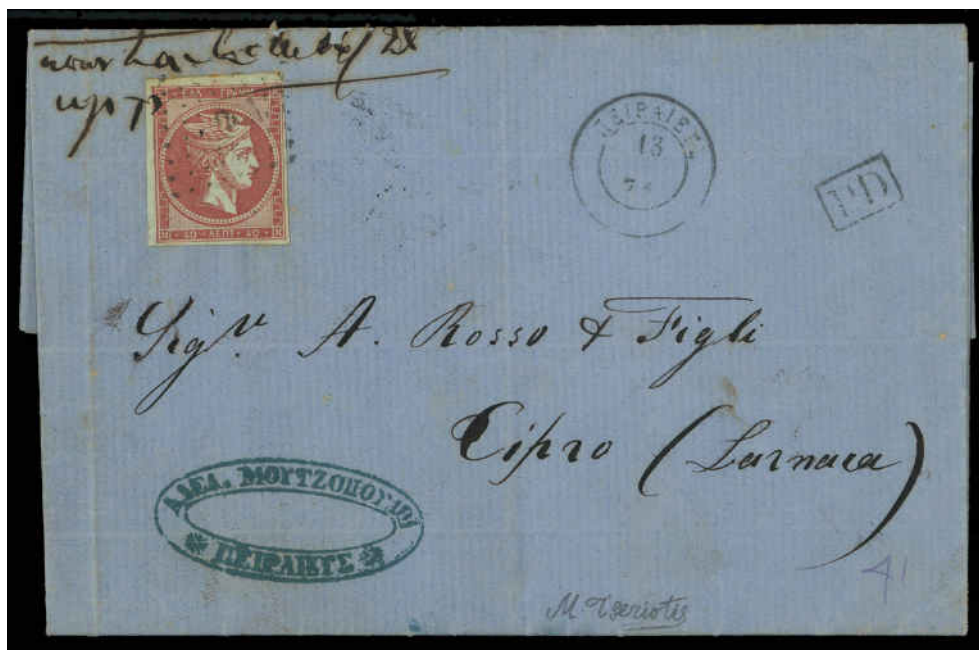 ΕΛΛ. ΓΡΑΜΜ.
40 ΛΕΠΤ. 40
ΠΕΙΡΑΙΕΥΣ
13
PD
Sigri A. Rosso & Figli
Cipro (Larnaca)
ΑΔΕΛ. ΜΟΥΤΖΟΠΟΥΛΟΙ
ΠΕΙΡΑΙΕΥΣ
41
M Tseriotis